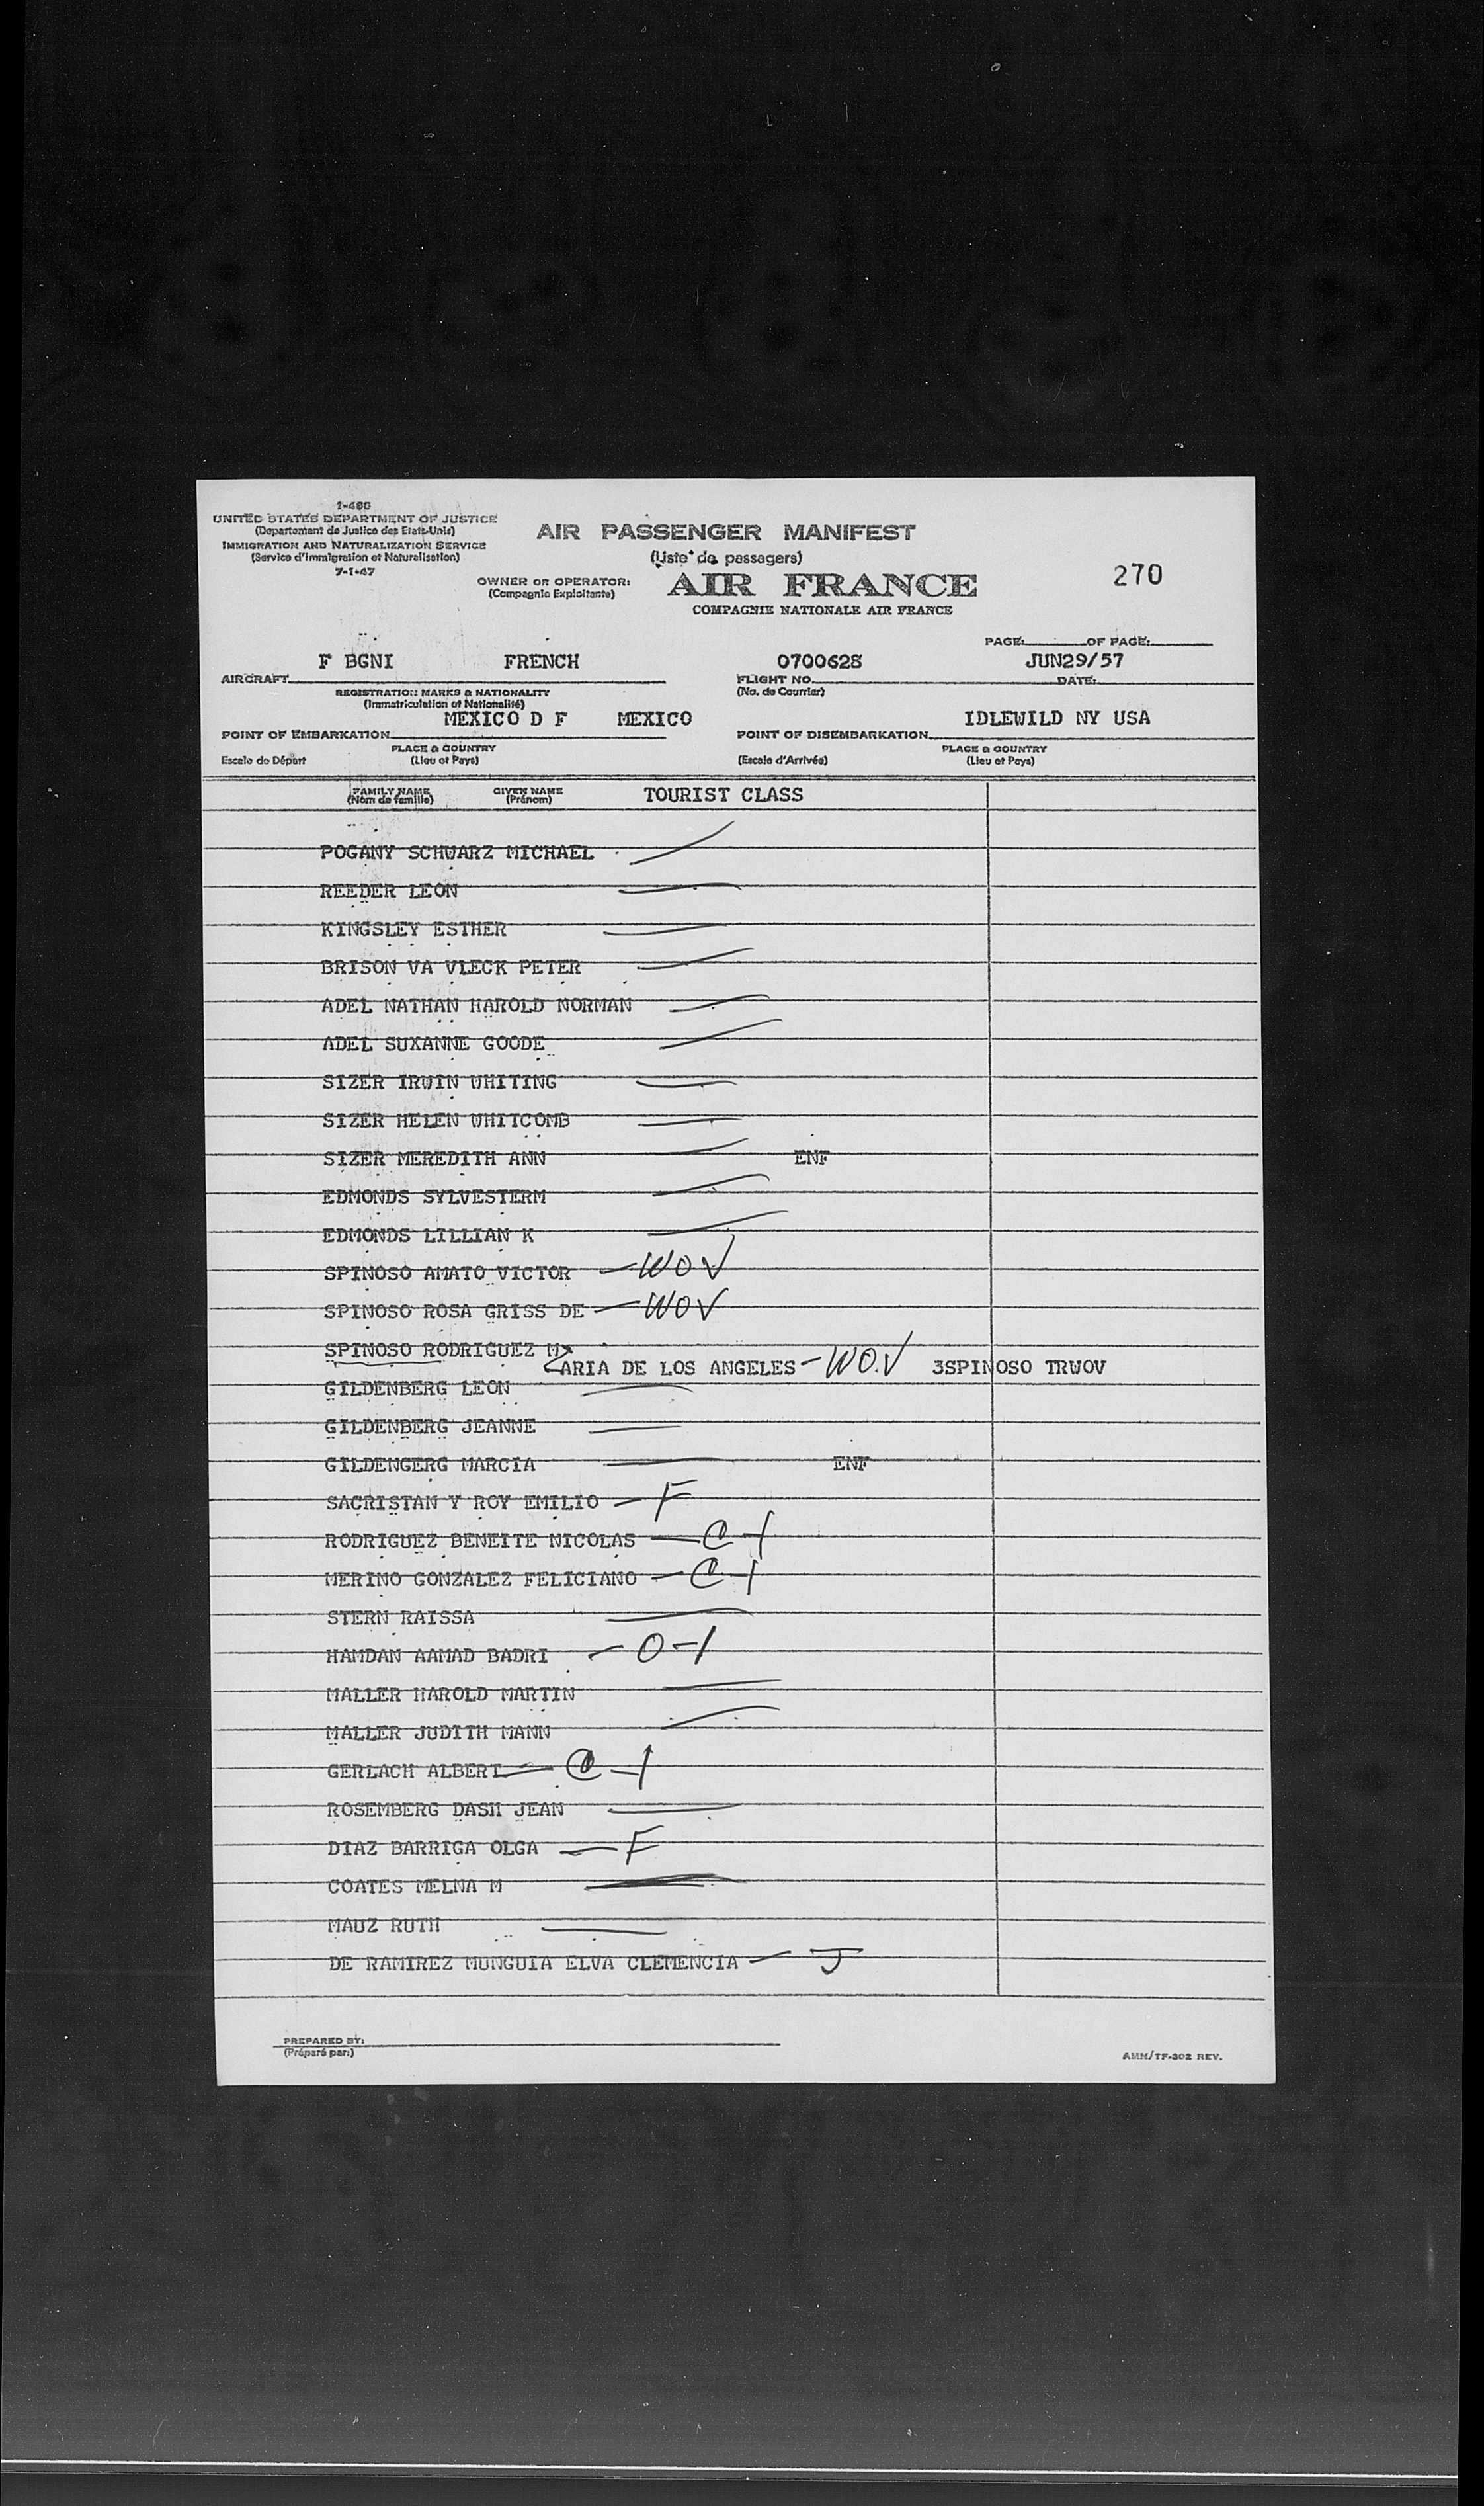 I-466
UNITED STATES DEPARTMENT OF JUSTICE
(Departement de Justice des Etats-Unis)
IMMIGRATION AND NATURALIZATION SERVICE
(Service d'Immigration et Naturalisation)
7-1-47
AIR PASSENGER MANIFEST
(Liste de passagers)
OWNER OR OPERATOR:
(Compagnie Exploitante)
AIR FRANCE
COMPAGNIE NATIONALE AIR FRANCE
270
PAGE: OF PAGE:
F BGNI FRENCH 0700628 JUN29/57
AIRCRAFT FLIGHT NO. DATE:
REGISTRATION MARKS & NATIONALITY (No. de Courrier)
(Immatriculation et Nationalité)
MEXICO D F MEXICO IDLEWILD NY USA
POINT OF EMBARKATION POINT OF DISEMBARKATION
PLACE & COUNTRY PLACE & COUNTRY
Escale de Départ (Lieu et Pays) (Escale d'Arrivée) (Lieu et Pays)
FAMILY NAME GIVEN NAME TOURIST CLASS
(Nom de famille) (Prénom)
POGANY SCHWARZ MICHAEL
REEDER LEON
KINGSLEY ESTHER
BRISON VA VLECK PETER
ADEL NATHAN HAROLD NORMAN
ADEL SUXANNE GOODE
SIZER IRWIN WHITING
SIZER HELEN WHITCOMB
SIZER MEREDITH ANN ENF
EDMONDS SYLVESTERM
EDMONDS LILLIAN K
SPINOSO AMATO VICTOR — WOV
SPINOSO ROSA GRISS DE — WOV
SPINOSO RODRIGUEZ M
ARIA DE LOS ANGELES - WO.V 3SPINOSO TRWOV
GILDENBERG LEON
GILDENBERG JEANNE
GILDENGERG MARCIA ENF
SACRISTAN Y ROY EMILIO — F
RODRIGUEZ BENEITE NICOLAS — C-1
MERINO GONZALEZ FELICIANO — C-1
STERN RAISSA
HAMDAN AAMAD BADRI — O-1
MALLER HAROLD MARTIN
MALLER JUDITH MANN
GERLACH ALBERT — C-1
ROSEMBERG DASH JEAN
DIAZ BARRIGA OLGA — F
COATES MELNA M
MAUZ RUTH
DE RAMIREZ MUNGUIA ELVA CLEMENCIA — J
PREPARED BY:
(Préparé par:)
AMM/TF-302 REV.